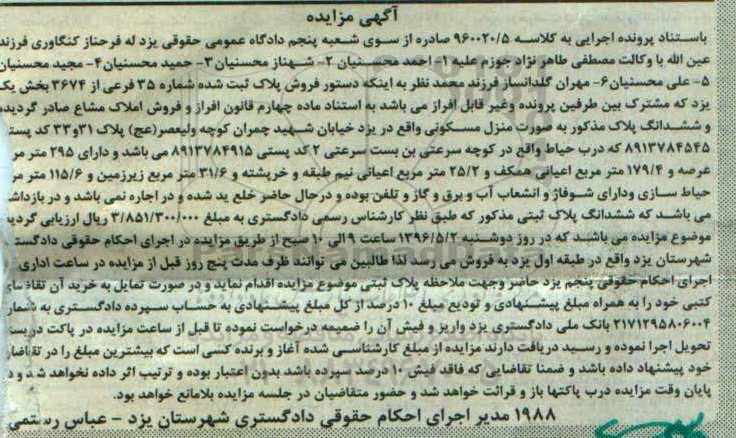 آگهی مزایده
باستناد پرونده اجرایی به کلاسه ۹۶۰۰۲۰/۵ صادره از سوی شعبه پنجم دادگاه عمومی حقوقی یزد له فرحناز کنگاوری فرزند
عین الله با وکالت مصطفی طاهر نژاد جوزم علیه ۱- احمد محسنیان ۲- شهناز محسنیان ۳- حمید محسنیان ۴- مجید محسنیان
۵- علی محسنیان ۶- مهران گلدانساز فرزند محمد نظر به اینکه دستور فروش پلاک ثبت شده شماره ۳۵ فرعی از ۳۶۷۴ بخش یک
یزد که مشترک بین طرفین پرونده وغیر قابل افراز می باشد به استناد ماده چهارم قانون افراز و فروش املاک مشاع صادر گردیده
و ششدانگ پلاک مذکور به صورت منزل مسکونی واقع در یزد خیابان شهید چمران کوچه ولیعصر(عج) پلاک ۳۱و۳۳ کد
۸۹۱۳۷۸۴۵۴۵ که درب حیاط واقع در کوچه سرعتی بن بست سرعتی ۲ کد پستی ۸۹۱۳۷۸۴۹۱۵ می باشد و دارای ۲۹۵ متر
عرصه و ۱۷۹/۴ متر مربع اعیانی همکف و ۲۵/۲ متر مربع اعیانی نیم طبقه و خرپشته و ۳۱/۶ متر مربع زیرزمین و ۱۱۵/۶ متر
حیاط سازی ودارای شوفاژ و انشعاب آب و برق و گاز و تلفن بوده و درحال حاضر خلع ید شده و در اجاره نمی باشد و در
می باشد که ششدانگ پلاک ثبتی مذکور که طبق نظر کارشناس رسمی دادگستری به مبلغ ۳/۸۵۱/۳۰۰/۰۰۰ ریال ارزیابی
موضوع مزایده می باشد که در روز دوشنبه ۱۳۹۶/۵/۲ ساعت ۹ الی ۱۰ صبح از طریق مزایده در اجرای احکام حقوقی
شهرستان یزد واقع در طبقه اول یزد به فروش می رسد لذا طالبین می توانند ظرف مدت پنج روز قبل از مزایده در ساعت اداری
اجرای احکام حقوقی پنجم یزد حاضر وجهت ملاحظه پلاک ثبتی موضوع مزایده اقدام نماید و در صورت تمایل به خرید آن
کتبی خود را به همراه مبلغ پیشنهادی و تودیع مبلغ ۱۰ درصد از کل مبلغ پیشنهادی به حساب سپرده دادگستری به
۲۱۷۱۲۹۵۸۰۶۰۰۴ بانک ملی دادگستری یزد واریز و فیش آن را ضمیمه درخواست نموده تا قبل از ساعت مزایده در پاکت
تحویل اجرا نموده و رسید دریافت دارند مزایده از مبلغ کارشناسی شده آغاز و برنده کسی است که بیشترین مبلغ را در
خود پیشنهاد داده باشد و ضمنا تقاضایی که فاقد فیش ۱۰ درصد سپرده باشد بدون اعتبار بوده و ترتیب اثر داده نخواهد شد و
پایان وقت مزایده درب پاکتها باز و قرائت خواهد شد و حضور متقاضیان در جلسه مزایده بلامانع خواهد بود.
۱۹۸۸ مدیر اجرای احکام حقوقی دادگستری شهرستان یزد - عباس رستمی